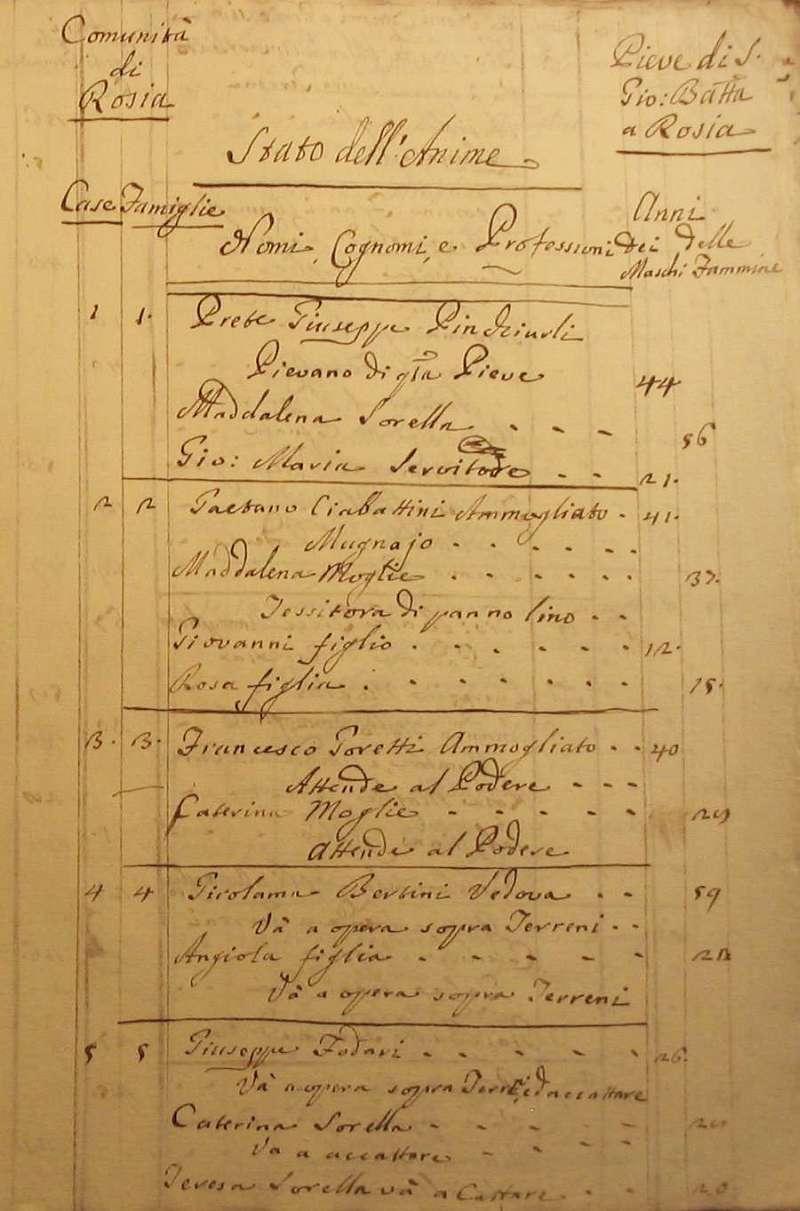 Comunità
di
Rosia
Pieve di S.
Gio: Batta
a Rosia
Stato dell'Anime
Case Famiglie
Anni
Nomi, Cognomi, e Professioni dei delle
Maschi Fammine
1 1. Prete Giuseppe
Pievano di qta Pieve 44
Maddalena Sorella 56
Gio: Maria Servitore 21.
2 2 Gaetano Ciabattini Ammogliato 41.
Mugnajo
Maddalena Moglie 37.
Tessitora di panno lino
Giovanni figlio 12.
Rosa figlia 15.
3. 3. Francesco Poretti Ammogliato 40
Attende al Podere
Caterina Moglie
Attende al Podere
4 4 Girolama Bersini Vedova 59
Và a opera sopra Terreni
Angiola figlia
Và a opera sopra Terreni
5 5 Giuseppe Fodari 26.
Và a opera sopra Terreni, ed accattare
Caterina Sorella
Va a accattare
Teresa Sorella và a Cattare